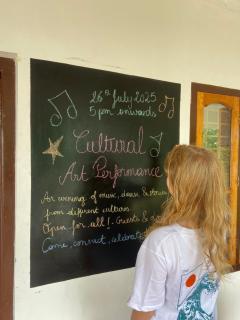 26th July 2025
5 pm onwards
Cultural
Art Performance
An evening of music, dance & stories
from different cultures
Open for all! Guests &
Come, connect, celebrate